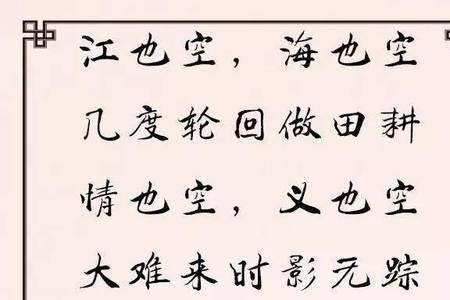 江也空，海也空
几度轮回做田耕
情也空，义也空
大难来时影无踪